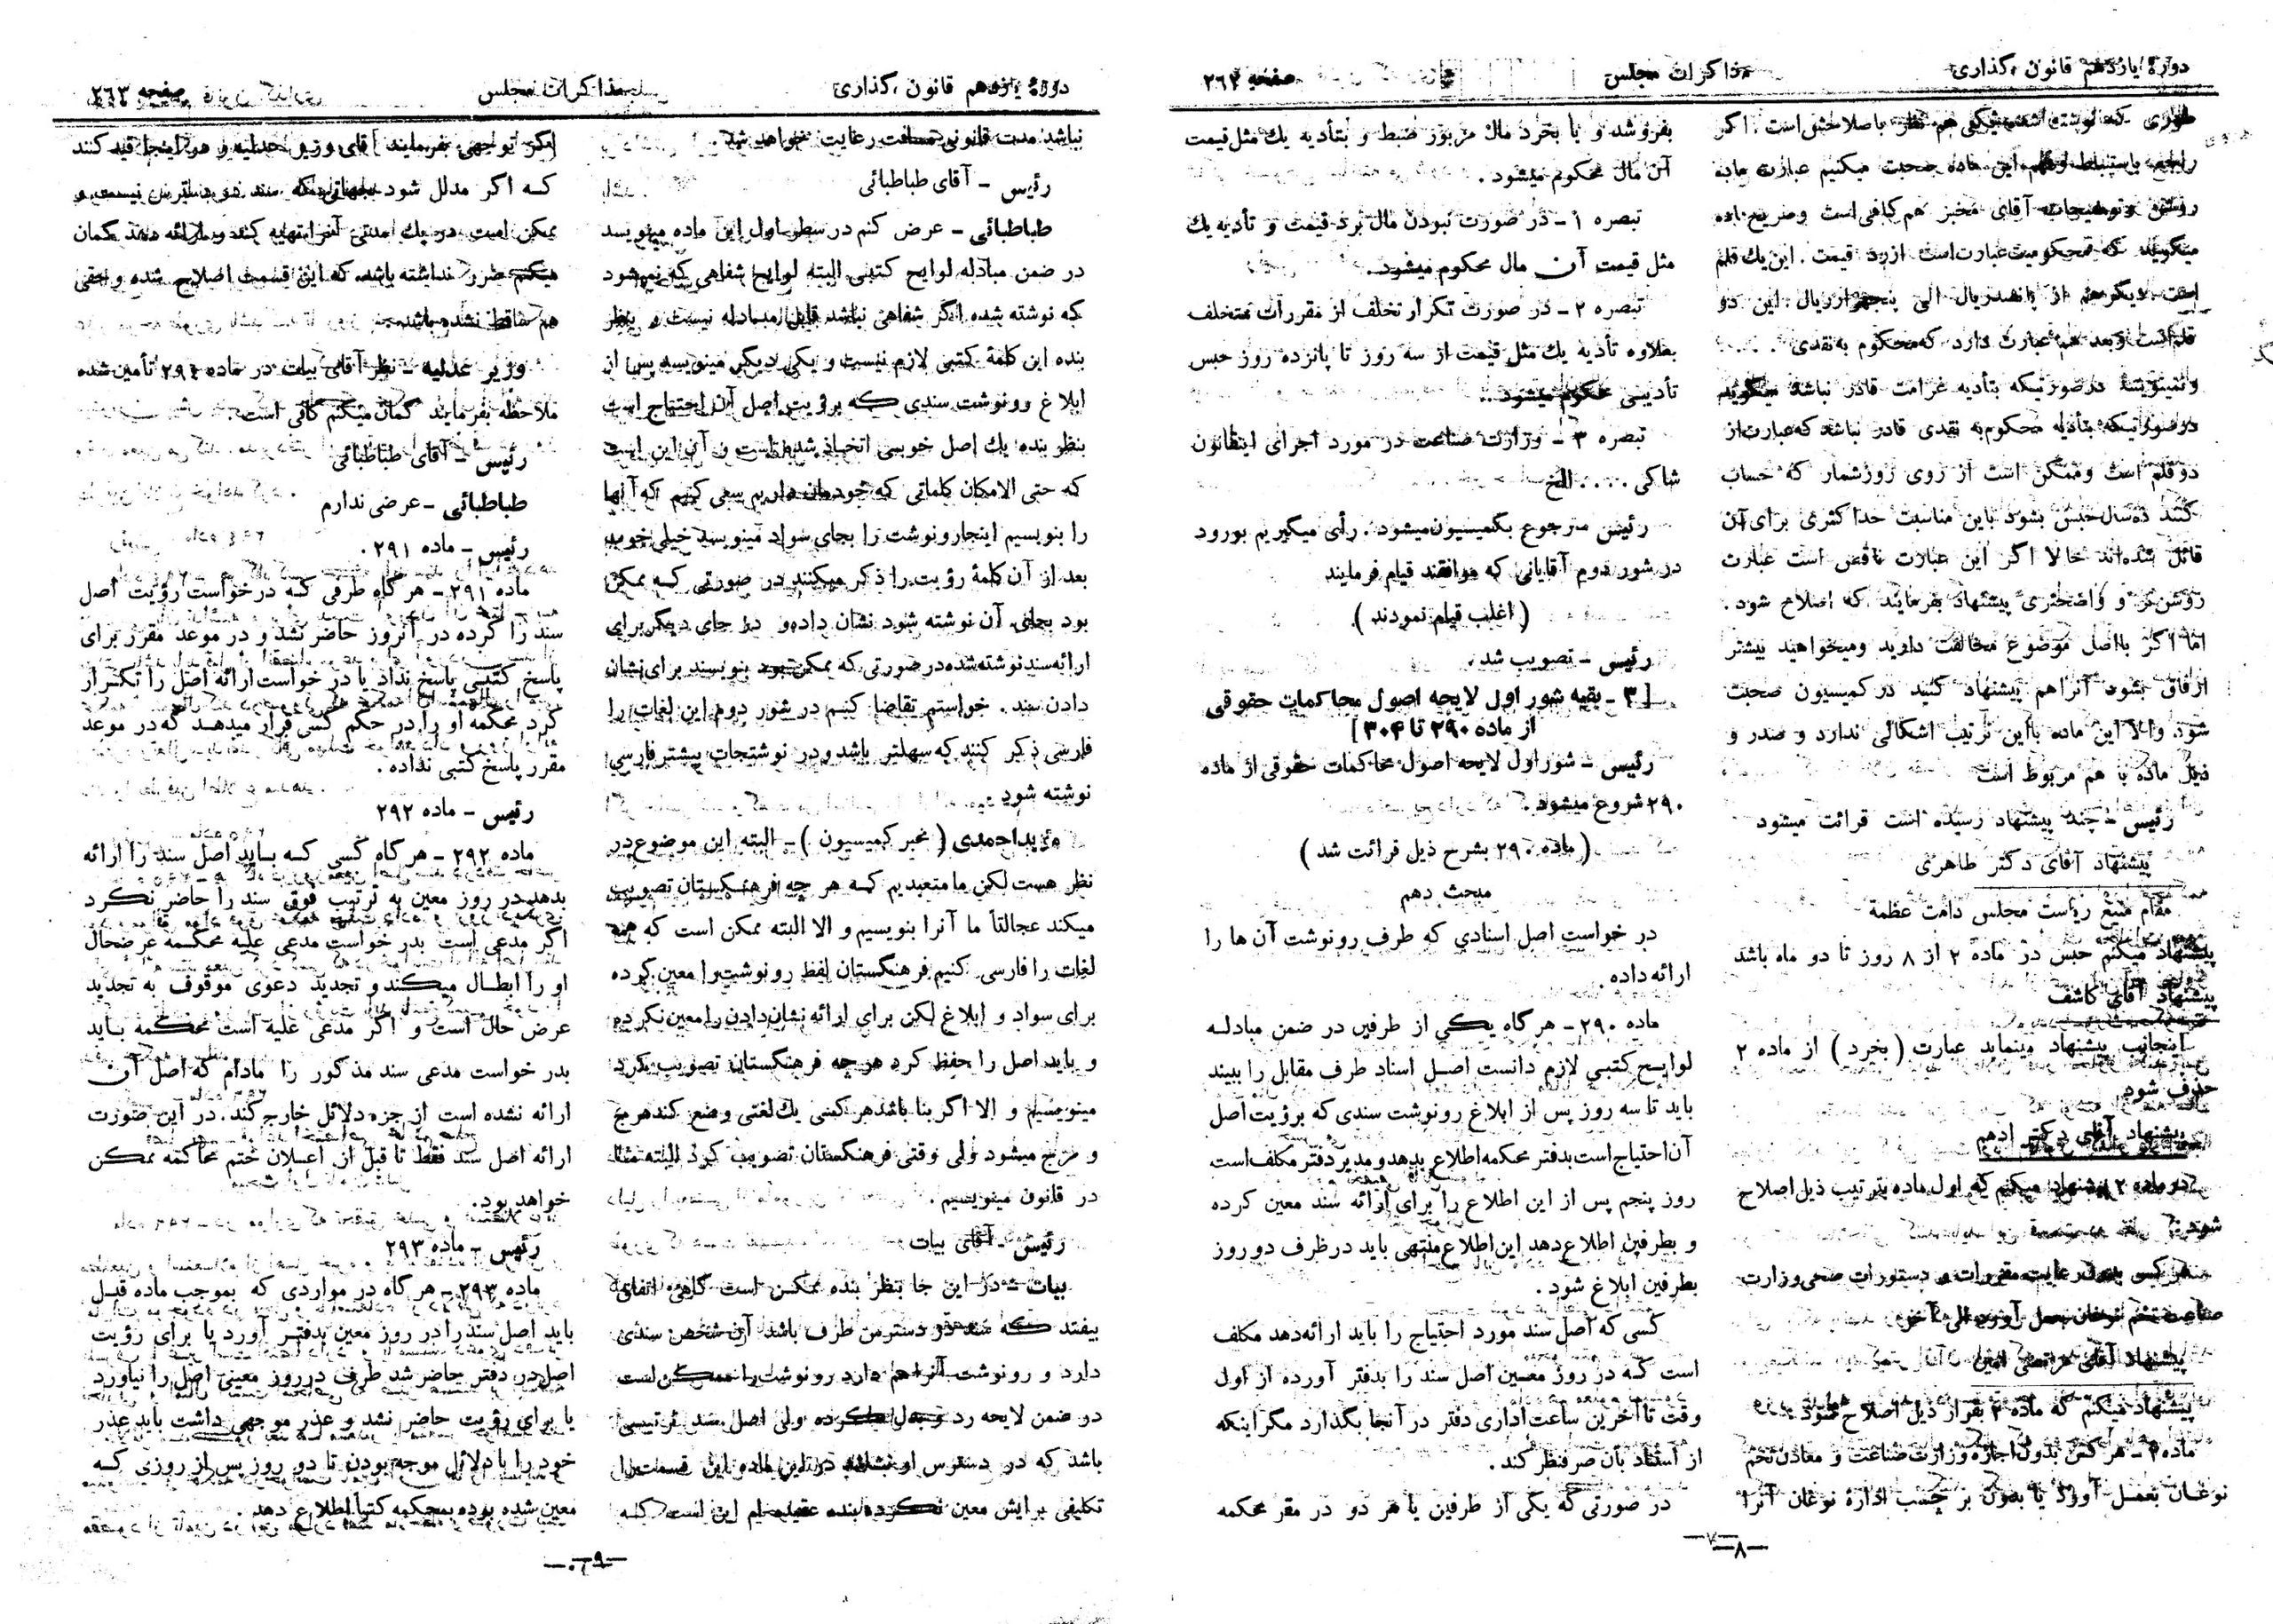 دورۀ یازدهم قانون گذاری
مذاکرات مجلس
صفحه ۲۶۲
طوری که نوشته هم نظر باصلاحش است. اگر
راجع باستنباط این ماده صحبت میکنیم عبارت ماده
روشن و توضیحات آقای مخبر هم کافی است و صریح ماده
میگوید که محکومیت عبارت است از رد قیمت. این یک قلم
است دیگر هم از پانصد ریال الی پنجهزار ریال. این دو
قلم است و بعد هم عبارت دارد که محکوم به نقدی . . . .
و نمینویسد در صورتیکه بتأدیه غرامت قادر نباشد میگوید
در صورتیکه بتأدیه محکوم به نقدی قادر نباشد که عبارت از
دو قلم است و ممکن است از روی روز شمار که حساب
کنند ده سال حبس بشود باین مناسبت حداکثری برای آن
قائل شده‌اند حالا اگر این عبارت ناقص است عبارت
روشن‌تر و واضحتری پیشنهاد بفرمایند که اصلاح شود.
اما اگر با اصل موضوع مخالفت دارید و میخواهید بیشتر
ارفاق بشود آنرا هم پیشنهاد کنید در کمیسیون صحبت
شود. والا این ماده با این ترتیب اشکالی ندارد و صدر و
ذیل ماده با هم مربوط است
رئیس - چند پیشنهاد رسیده است قرائت میشود
پیشنهاد آقای دکتر طاهری
مقام منیع ریاست مجلس دامت عظمة
پیشنهاد میکنم حبس در ماده ۲ از ۸ روز تا دو ماه باشد
پیشنهاد آقای کاشف
اینجانب پیشنهاد مینماید عبارت (بخرد) از ماده ۲
حذف شود
پیشنهاد آقای دکتر ادهم
در ماده ۲ پیشنهاد میکنم که اول ماده بترتیب ذیل اصلاح
شود:
هر کس بدون رعایت مقررات و دستورات وزارت
صناعت تخم نوغان بعمل آورد الی آخر
پیشنهاد آقای مرتضی
پیشنهاد میکنم که ماده ۲ بقرار ذیل اصلاح شود:
ماده ۲ - هر کس بدون اجازه وزارت صناعت و معادن تخم
نوغان بعمل آورد یا بدون بر چسب ادارۀ نوغان آنرا
بفروشد و یا بخرد مال مزبور ضبط و بتأدیه یک مثل قیمت
آن مال محکوم میشود.
تبصره ۱ - در صورت نبودن مال برد قیمت و تأدیه یک
مثل قیمت آن مال محکوم میشود.
تبصره ۲ - در صورت تکرار تخلف از مقررات متخلف
بعلاوه تأدیه یک مثل قیمت از سه روز تا پانزده روز حبس
تأدیبی محکوم میشود.
تبصره ۳ - وزارت صناعت در مورد اجرای این قانون
شاکی . . . . الخ
رئیس - مرجوع بکمیسیون میشود. رأی میگیریم بورود
در شور دوم آقایانی که موافقند قیام فرمایند
(اغلب قیام نمودند)
رئیس - تصویب شد.
[۳ - بقیه شور اول لایحه اصول محاکمات حقوقی
از ماده ۲۹۰ تا ۳۰۴]
رئیس - شور اول لایحه اصول محاکمات حقوقی از ماده
۲۹۰ شروع میشود.
(ماده ۲۹۰ بشرح ذیل قرائت شد)
مبحث دهم
در خواست اصل اسنادی که طرف رونوشت آن ها را
ارائه داده.
ماده ۲۹۰ - هر گاه یکی از طرفین در ضمن مبادله
لوایح کتبی لازم دانست اصل اسناد طرف مقابل را ببیند
باید تا سه روز پس از ابلاغ رونوشت سندی که برؤیت اصل
آن احتیاج است بدفتر محکمه اطلاع بدهد و مدیر دفتر مکلف است
روز پنجم پس از این اطلاع را برای ارائه سند معین کرده
و بطرفین اطلاع دهد این اطلاع منتهی باید در ظرف دو روز
بطرفین ابلاغ شود.
کسی که اصل سند مورد احتیاج را باید ارائه دهد مکلف
است که در روز معین اصل سند را بدفتر آورده از اول
وقت تا آخرین ساعت اداری دفتر در آنجا بگذارد مگر اینکه
از استناد بآن صرفنظر کند.
در صورتی که یکی از طرفین یا هر دو در مقر محکمه
—۸—
دورۀ یازدهم قانون گذاری
مذاکرات مجلس
صفحه ۲۶۳
نباشد مدت قانونی مسافت رعایت خواهد شد.
رئیس - آقای طباطبائی
طباطبائی - عرض کنم در سطر اول این ماده مینویسد
در ضمن مبادله لوایح کتبی البته لوایح شفاهی که نمیشود
که نوشته شده اگر شفاهی باشد قابل مبادله نیست و بنظر
بنده این کلمۀ کتبی لازم نیست و یکی دیگر مینویسد پس از
ابلاغ رونوشت سندی که برؤیت اصل آن احتیاج است
بنظر بنده یک اصل خوبی اتخاذ شده است و آن این است
که حتی الامکان کلماتی که خودمان داریم سعی کنیم که آنها
را بنویسیم اینجا رونوشت را بجای سواد مینویسد خیلی خوب
بعد از آن کلمۀ رؤیت را ذکر میکنند در صورتی که ممکن
بود بجای آن نوشته شود نشان داده و در جای دیگر برای
ارائه سند نوشته شده در صورتی که ممکن بود بنویسند برای نشان
دادن سند. خواستم تقاضا کنم در شور دوم این لغات را
فارسی ذکر کنند که سهلتر باشد و در نوشتجات بیشتر فارسی
نوشته شود.
مؤید احمدی (مخبر کمیسیون) - البته این موضوع در
نظر هست لکن ما متعبدیم که هر چه فرهنگستان تصویب
میکند عجالتاً ما آنرا بنویسیم و الا البته ممکن است که همه
لغات را فارسی کنیم فرهنگستان لفظ رونوشت را معین کرده
برای سواد و ابلاغ لکن برای ارائه نشان دادن را معین نکرده
و باید اصل را حفظ کرد هر چه فرهنگستان تصویب کرد
مینویسیم و الا اگر بنا باشد هر کسی یک لغتی وضع کند هرج
و مرج میشود ولی وقتی فرهنگستان تصویب کرد البته
در قانون مینویسیم.
رئیس - آقای بیات
بیات - در این جا بنظر بنده ممکن است گاهی اتفاق
بیفتد که سند در دسترس طرف باشد آن شخص سندی
دارد و رونوشت آنرا هم دارد رونوشت را ممکن است
در ضمن لایحه رد و بدل کرده ولی اصل سند ترتیبی
باشد که در دسترس او نباشد در این ماده این قسمت را
تکلیفی برایش معین نکرده بنده عقیده‌ام این است که
اگر توجهی بفرمایند آقای وزیر عدلیه و هم اینجا قید کنند
که اگر مدلل شود که سند در دسترس نیست و
ممکن است در یک مدتی آنرا تهیه کند و ارائه دهد گمان
میکنم ضرر نداشته باشد که این قسمت اصلاح شده و حقی
هم ساقط نشده باشد.
وزیر عدلیه - نظر آقای بیات در ماده ۲۹۴ تأمین شده
ملاحظه بفرمایند گمان میکنم کافی است.
رئیس - آقای طباطبائی
طباطبائی - عرضی ندارم
رئیس - ماده ۲۹۱.
ماده ۲۹۱ - هر گاه طرفی که درخواست رؤیت اصل
سند را کرده در آنروز حاضر نشد و در موعد مقرر برای
پاسخ کتبی پاسخ نداد یا در خواست ارائه اصل را تکرار
کرد محکمه او را در حکم کسی قرار میدهد که در موعد
مقرر پاسخ کتبی نداده.
رئیس - ماده ۲۹۲
ماده ۲۹۲ - هر گاه کسی که باید اصل سند را ارائه
بدهد در روز معین به ترتیب فوق سند را حاضر نکرد
اگر مدعی است بدر خواست مدعی علیه محکمه عرضحال
او را ابطال میکند و تجدید دعوی موقوف به تجدید
عرض حال است و اگر مدعی علیه است محکمه باید
بدر خواست مدعی سند مذکور را مادام که اصل آن
ارائه نشده است از جزء دلائل خارج کند. در این صورت
ارائه اصل سند فقط تا قبل از اعلان ختم محاکمه ممکن
خواهد بود.
رئیس - ماده ۲۹۳
ماده ۲۹۳ - هر گاه در مواردی که بموجب ماده قبل
باید اصل سند را در روز معین بدفتر آورد یا برای رؤیت
اصل در دفتر حاضر شد طرف در روز معینی اصل را نیاورد
یا برای رؤیت حاضر نشد و عذر موجهی داشت باید عذر
خود را با دلائل موجه بودن تا دو روز پس از روزی که
معین شده بوده بمحکمه کتباً اطلاع دهد.